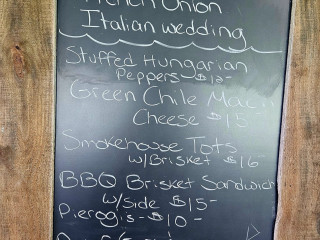 French Onion
Italian wedding
Stuffed Hungarian
Peppers $12-
Green Chile Mac n
Cheese $15-
Smokehouse Tots
w/Brisket $16-
BBQ Brisket Sandwich
w/Side $15-
Pierogis - $10-